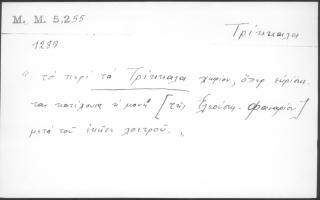 M. M. 5,255
Τρίκκαλα
1289
" τὸ περὶ τὰ Τρίκκαλα χωρίον, ὅπερ εὑρίσκε-
ται κατέχουσα ἡ μονὴ [τῆς Ἐλεούσης - Φαναρίου]
μετὰ τοῦ ἐκεῖσε λουτροῦ. "